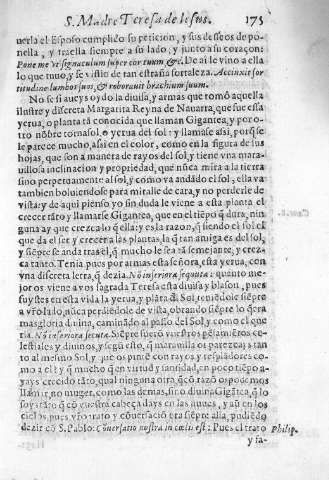 S. Madre Teresa de Iesus. 175
uerla el Esposo cumplido su peticion, y sus desseos de po-
nella, y traella siempre a su lado, y junto a su coraçon:
Pone me vt signaculum super cor tuum &c. De ai le vino a ella
lo que tuuo, y se vistio de tan estraña fortaleza. Accinxit for
titudine lumbos suos, & roborauit brachium suum.
No se si aueys oydo la diuisa, y armas que tomò aquella
ilustre y discreta Margarita Reyna de Nauarra, que fue essa
yerua, o planta tã conocida que llaman Gigantea, y por o-
tro nõbre tornasol, o yerua del sol: y llamase assi, porq̃ se
le parece mucho, assi en el color, como en la figura de sus
hojas, que son a manera de rayos del sol, y tiene vna mara-
uillosa inclinacion y propriedad, que nũca mira a la tierra
sino perpetuamente al sol, y como va andado el sol, ella va
tambien boluiendose para mitalle de cara, y no perderle de
vista: y de aqui pienso yo sin duda le viene a esta planta el
crecer tãto y llamarse Gigantea, que en el tiẽpo q̃ dura, nin
guna ay que crezca lo q̃ ella: y es la razon, q̃ siendo el sol el
que da el ser y crecer a las plantas, la q̃ tan amiga es del sol,
y siẽpre se anda tras el, q̃ mucho le sea tã semejante, y crez-
ca tanto. Tenia pues por armas esta señora, esta yerua, con
vna discreta letra, q̃ dezia. No inferiora sequuta: quanto me-
jor os viene a vos sagrada Teresa esta diuisa y blason, pues
fuystes en esta vida la yerua, y plãta del Sol, teniẽdole siẽpre
a vr̃o lado, nũca perdiẽdole de vista, obrando siẽpre lo q̃ era
mas gloria diuina, caminãdo al passo del Sol, y como el que
via. No inferiora secuta. Siẽpre fuerõ vuestros pẽsamiẽtos ce-
lestiales y diuinos, y segũ esto, q̃ marauilla os parezcais tan-
to al mesmo Sol, y que os pinte con rayos y respládores co-
mo a el: y q̃ mucho q̃ en virtud y santidad, en poco tiẽpo a-
yays crecido tãto, qual ninguna otra
llamir, no muger, como las demas, sino diuina Gigãtea, q̃ lo
soy s tãto q̃ cõ vuestra cabeça days en las nuues, y aũ en los
cielos, pues vr̃o trato y cõuersaciõ era siẽpre alla, pudiẽdo
dezir cõ S. Pablo: Cõuersatio nostra in cœlis est: Pues el trato
Philip.
y fa-